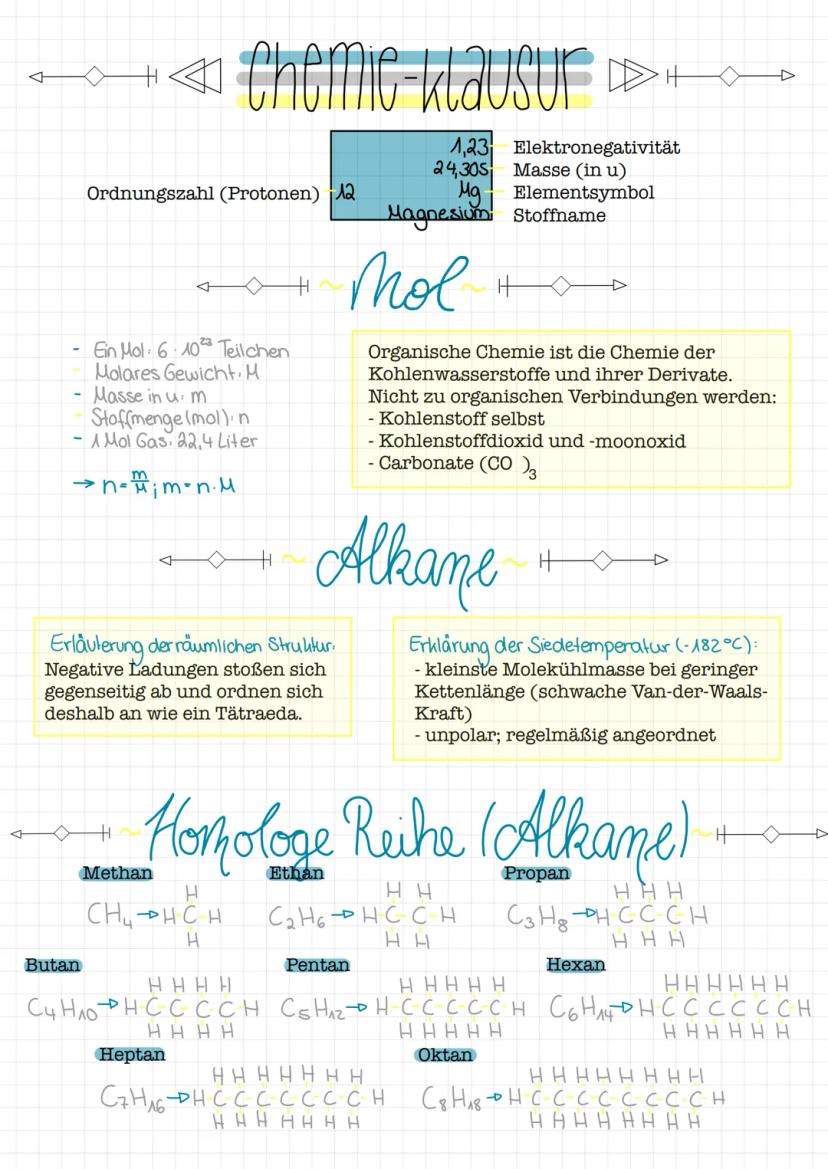 Chemie-klausur
1,23 Elektronegativität
24,305 Masse (in u)
Ordnungszahl (Protonen) 12 Mg Elementsymbol
Magnesium Stoffname
~ Mol ~
- Ein Mol: 6 · 10²³ Teilchen
- Molares Gewicht: M
- Masse in u: m
- Stoffmenge (mol): n
- 1 Mol Gas: 22,4 Liter
→ n = m/M ; m = n · M
Organische Chemie ist die Chemie der
Kohlenwasserstoffe und ihrer Derivate.
Nicht zu organischen Verbindungen werden:
- Kohlenstoff selbst
- Kohlenstoffdioxid und -moonoxid
- Carbonate (CO )₃
~ Alkane ~
Erläuterung der räumlichen Struktur:
Negative Ladungen stoßen sich
gegenseitig ab und ordnen sich
deshalb an wie ein Tätraeda.
Erklärung der Siedetemperatur (-182°C):
- kleinste Molekühlmasse bei geringer
Kettenlänge (schwache Van-der-Waals-
Kraft)
- unpolar; regelmäßig angeordnet
~ Homologe Reihe (Alkane) ~
Methan Ethan Propan
H H H H H H
CH₄ → H-C-H C₂H₆ → H-C-C-H C₃H₈ → H-C-C-C-H
H H H H H H
Butan Pentan Hexan
H H H H H H H H H H H H H H H
C₄H₁₀ → H-C-C-C-C-H C₅H₁₂ → H-C-C-C-C-C-H C₆H₁₄ → H-C-C-C-C-C-C-H
H H H H H H H H H H H H H H H
Heptan Oktan
H H H H H H H H H H H H H H H
C₇H₁₆ → H-C-C-C-C-C-C-C-H C₈H₁₈ → H-C-C-C-C-C-C-C-C-H
H H H H H H H H H H H H H H H